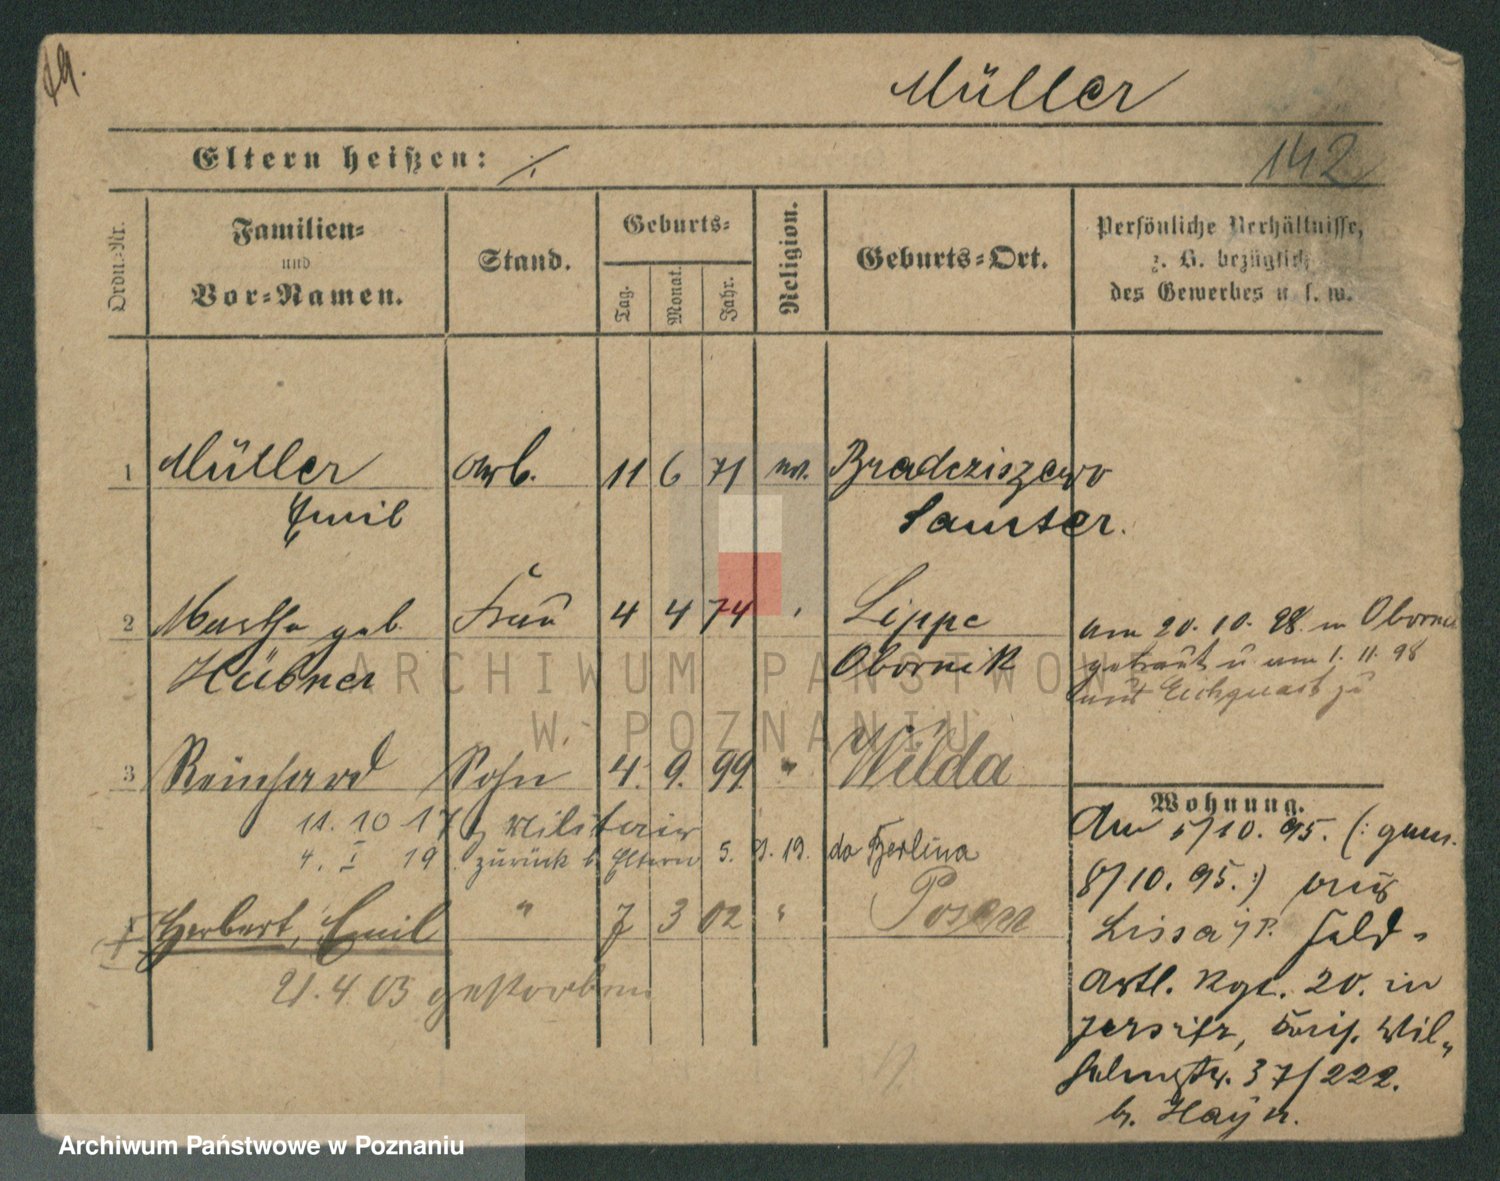 Müller
Eltern heißen: ./.
142
Ordn.-Nr.
Familien-
und
Vor-Namen.
Stand.
Geburts-
Tag.
Monat.
Jahr.
Religion.
Geburts-Ort.
Persönliche Verhältnisse,
z. B. bezüglich
des Gewerbes u. s. w.
1 Müller Arb. 11 6 71 ev. Bradcziszewo
Emil Samter.
2 Martha geb. Frau 4 4 74 Lippe
Hübner Obornik
am 20. 10. 98 in Obornik
getraut u. am 1. 11. 98
aus zu
3 Reinhard Sohn 4. 9. 99. " Wilda
11. 10 17 z. Militair
4. I 19. zurück b. Eltern 5. 9. 19. do Berlina
Herbert, Emil " 7 3 02 " Posen
21. 4. 03 gestorben
Wohnung.
Am 5/10. 95. (: gem.
8/10. 95. :) aus
Lissa i/P. Feld-
Artl. Rgt. 20. in
Jersitz, Wil-
helmstr. 37/222.
b. Hayn.
ARCHIWUM PAŃSTWOWE
W POZNANIU
Archiwum Państwowe w Poznaniu